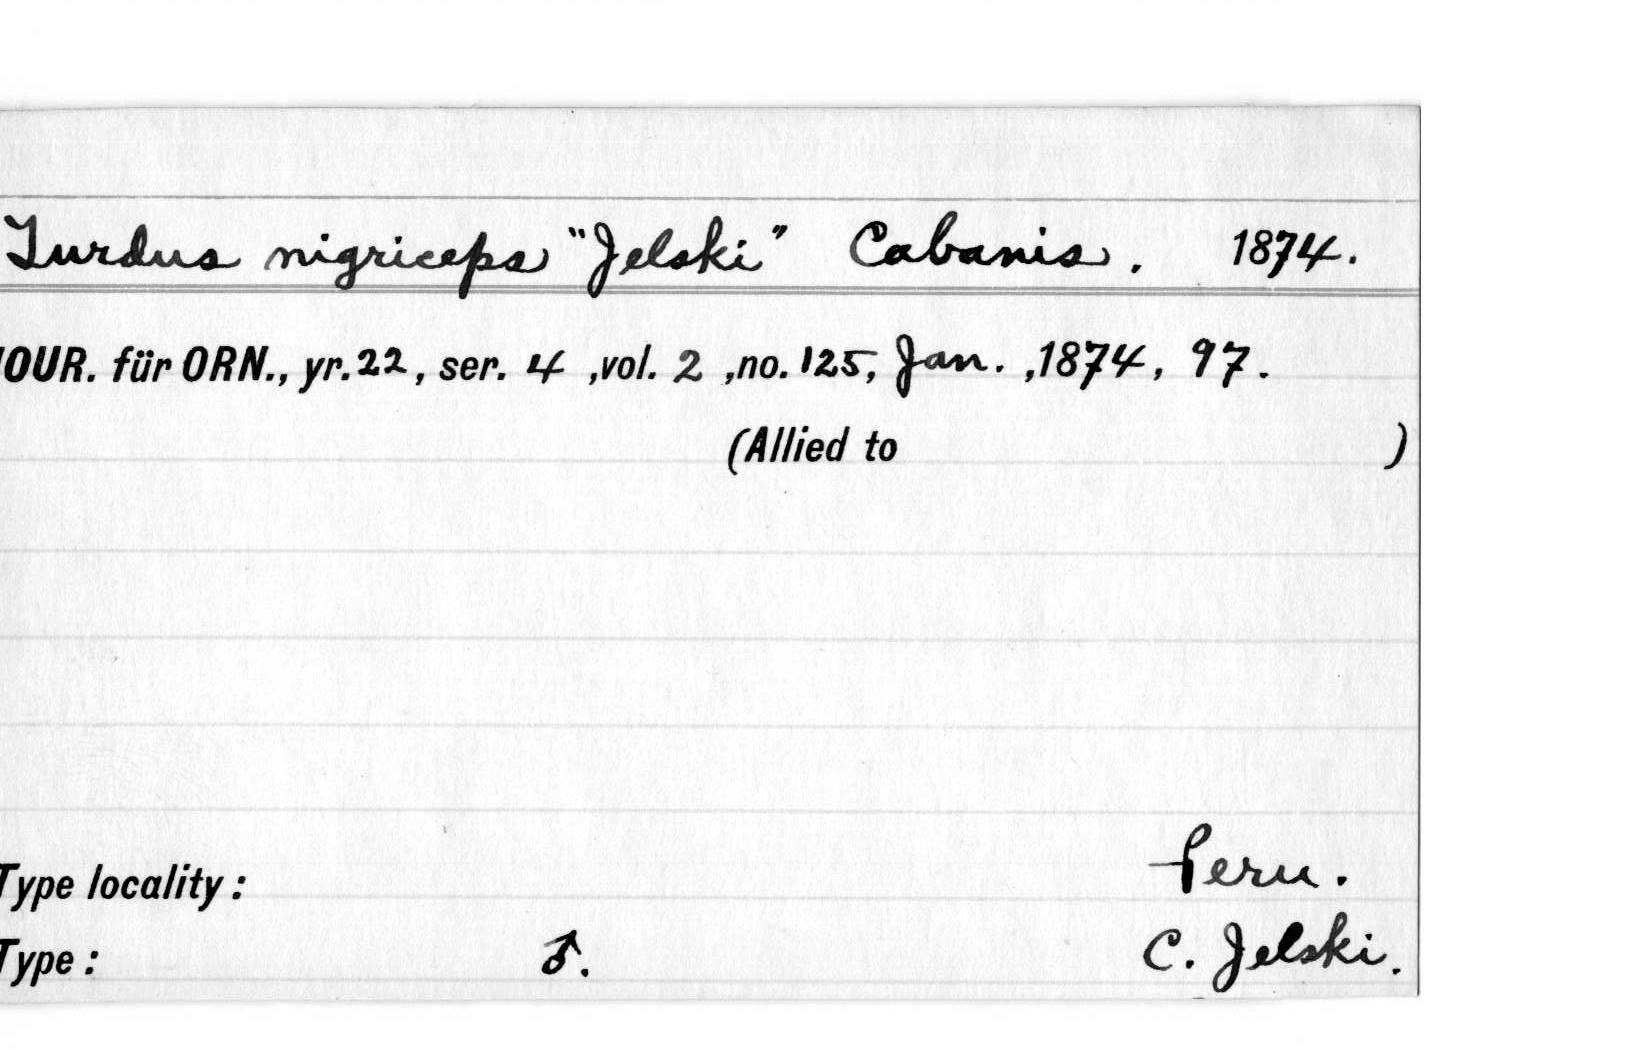 Turdus nigriceps "Jelski" Cabanis. 1874.
JOUR. für ORN., yr. 22, ser. 4 ,vol. 2 ,no. 125, Jan. ,1874, 97.
(Allied to )
Type locality: Peru.
Type: ♂. C. Jelski.